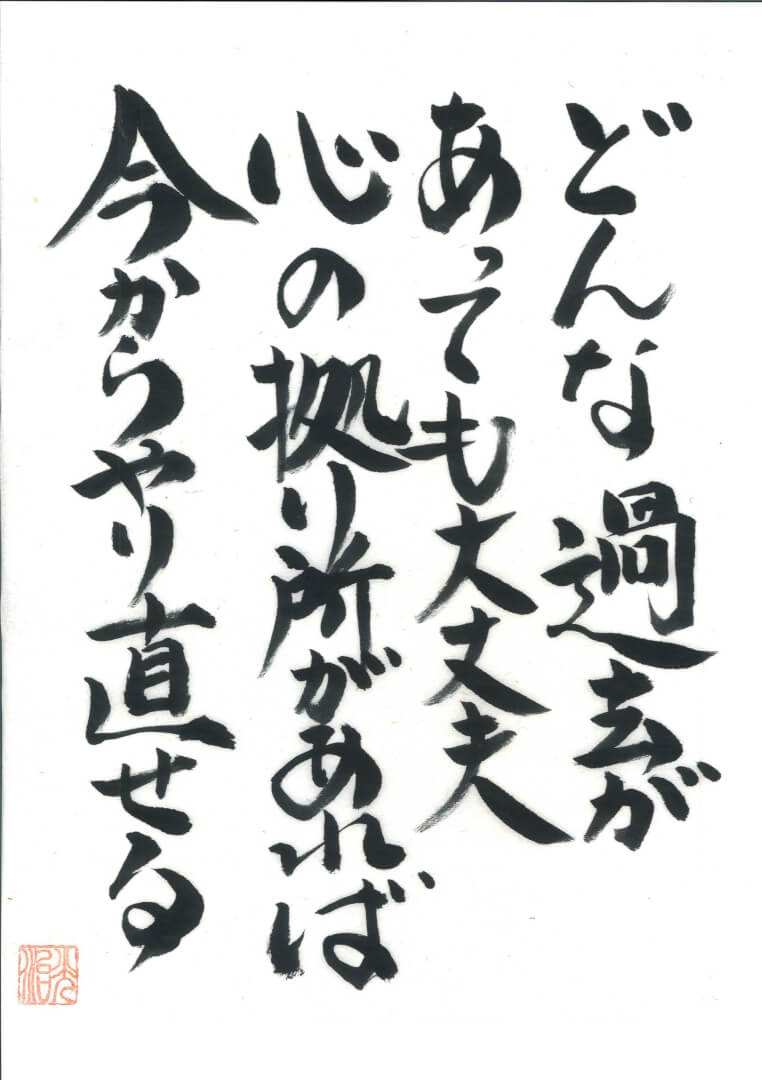 どんな過去が
あっても大丈夫
心の拠り所があれば
今からやり直せる